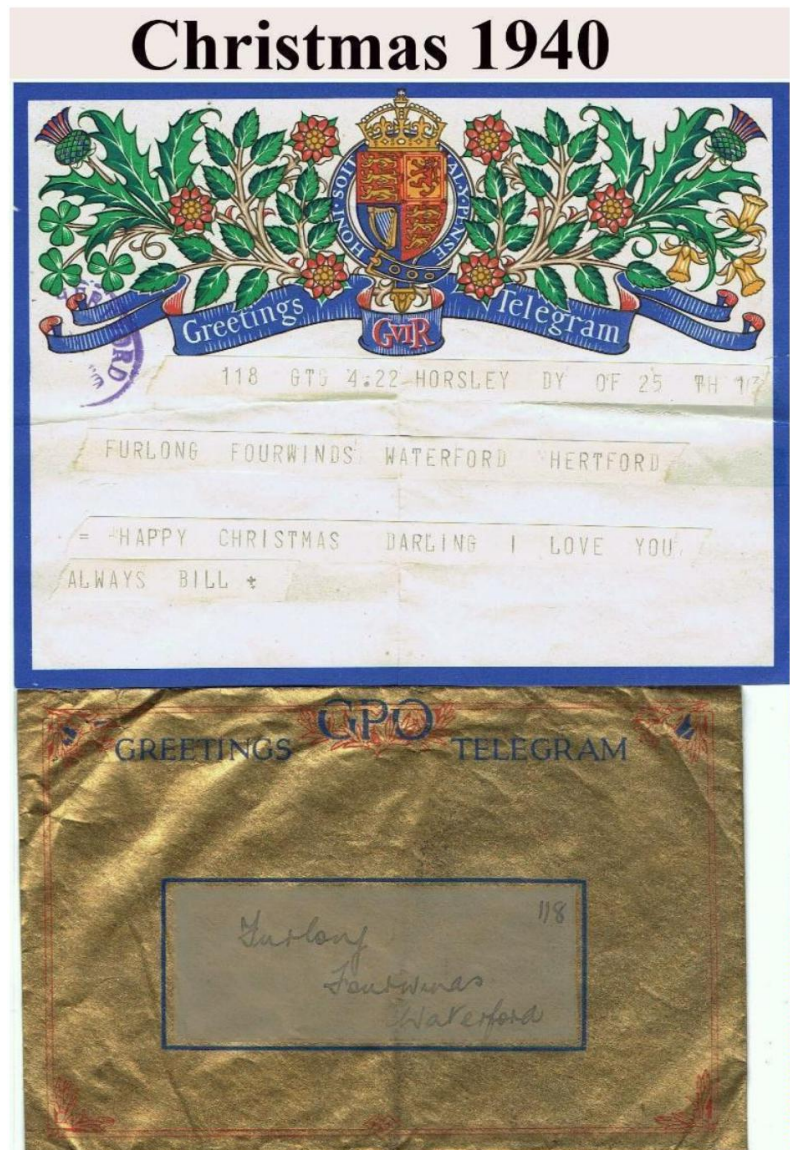 Christmas 1940
HONI·SOIT
MAL·Y·PENSE
Greetings
GVIR
Telegram
118 GTG 4.22 HORSLEY DY OF 25 TH
FURLONG FOURWINDS WATERFORD HERTFORD
= HAPPY CHRISTMAS DARLING I LOVE YOU
ALWAYS BILL +
GPO
GREETINGS TELEGRAM
118
Furlong
Fourwinds
Waterford